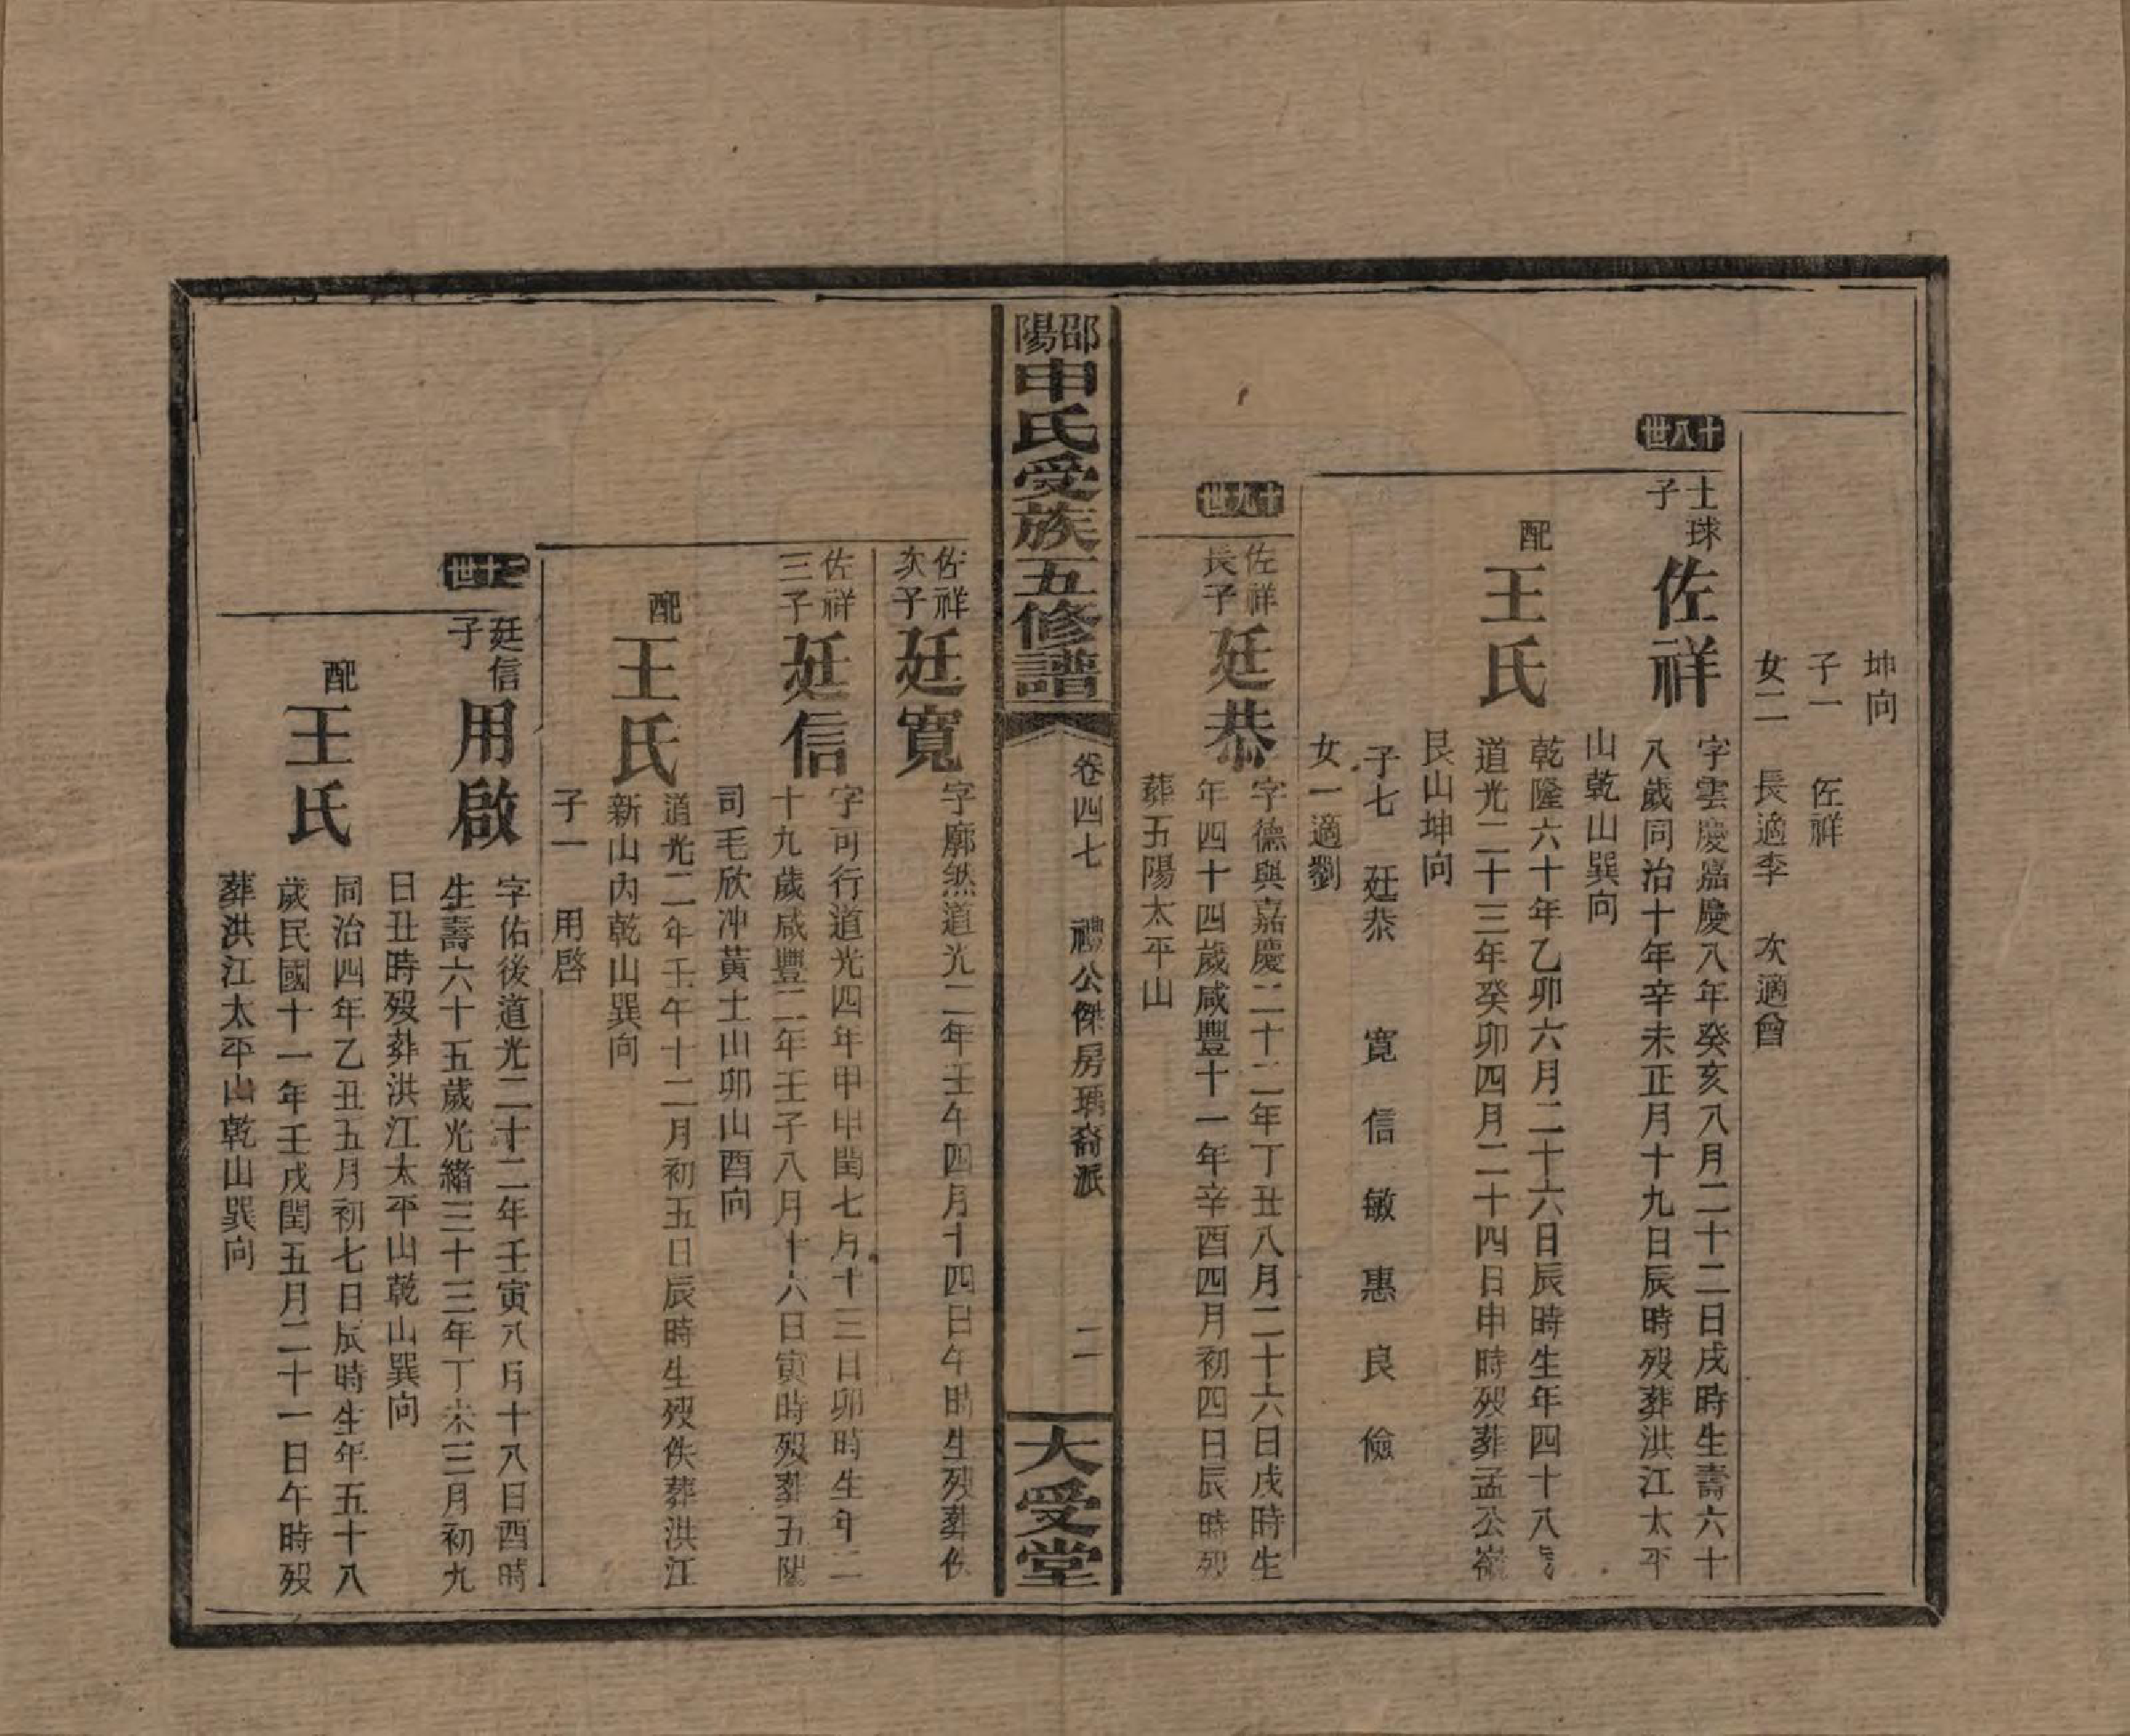 坤向
子一　佐祥
女二　長適李　次適曾
十八世
士球子
佐祥
字雲慶嘉慶八年癸亥八月二十二日戌時生壽六十
八歲同治十年辛未正月十九日辰時歿葬洪江太平
山乾山巽向
配
王氏
乾隆六十年乙卯六月二十六日辰時生年四十八歲
道光二十三年癸卯四月二十四日申時歿葬孟公嶺
艮山坤向
子七　廷恭　寬　信　敏　惠　良　儉
女一適劉
十九世
佐祥長子
廷恭
字德與嘉慶二十二年丁丑八月二十六日戌時生
年四十四歲咸豐十一年辛酉四月初四日辰時歿
葬五陽太平山
邵陽申氏受族五修譜
卷四七　禮公傑房瑀裔派　二
大受堂
佐祥次子
廷寬
字廓然道光二年壬午四月十四日午時生歿葬佚
佐祥三子
廷信
字可行道光四年甲申閏七月十三日卯時生年二
十九歲咸豐二年壬子八月十六日寅時歿葬五陽
司毛欣冲黃土山卯山酉向
配
王氏
道光二年壬午十二月初五日辰時生歿佚葬洪江
新山內乾山巽向
子一　用啓
二十世
廷信子
用啟
字佑後道光二十二年壬寅八月十八日酉時
生壽六十五歲光緒三十三年丁未三月初九
日丑時歿葬洪江太平山乾山巽向
配
王氏
同治四年乙丑五月初七日辰時生年五十八
歲民國十一年壬戌閏五月二十一日午時歿
葬洪江太平山乾山巽向